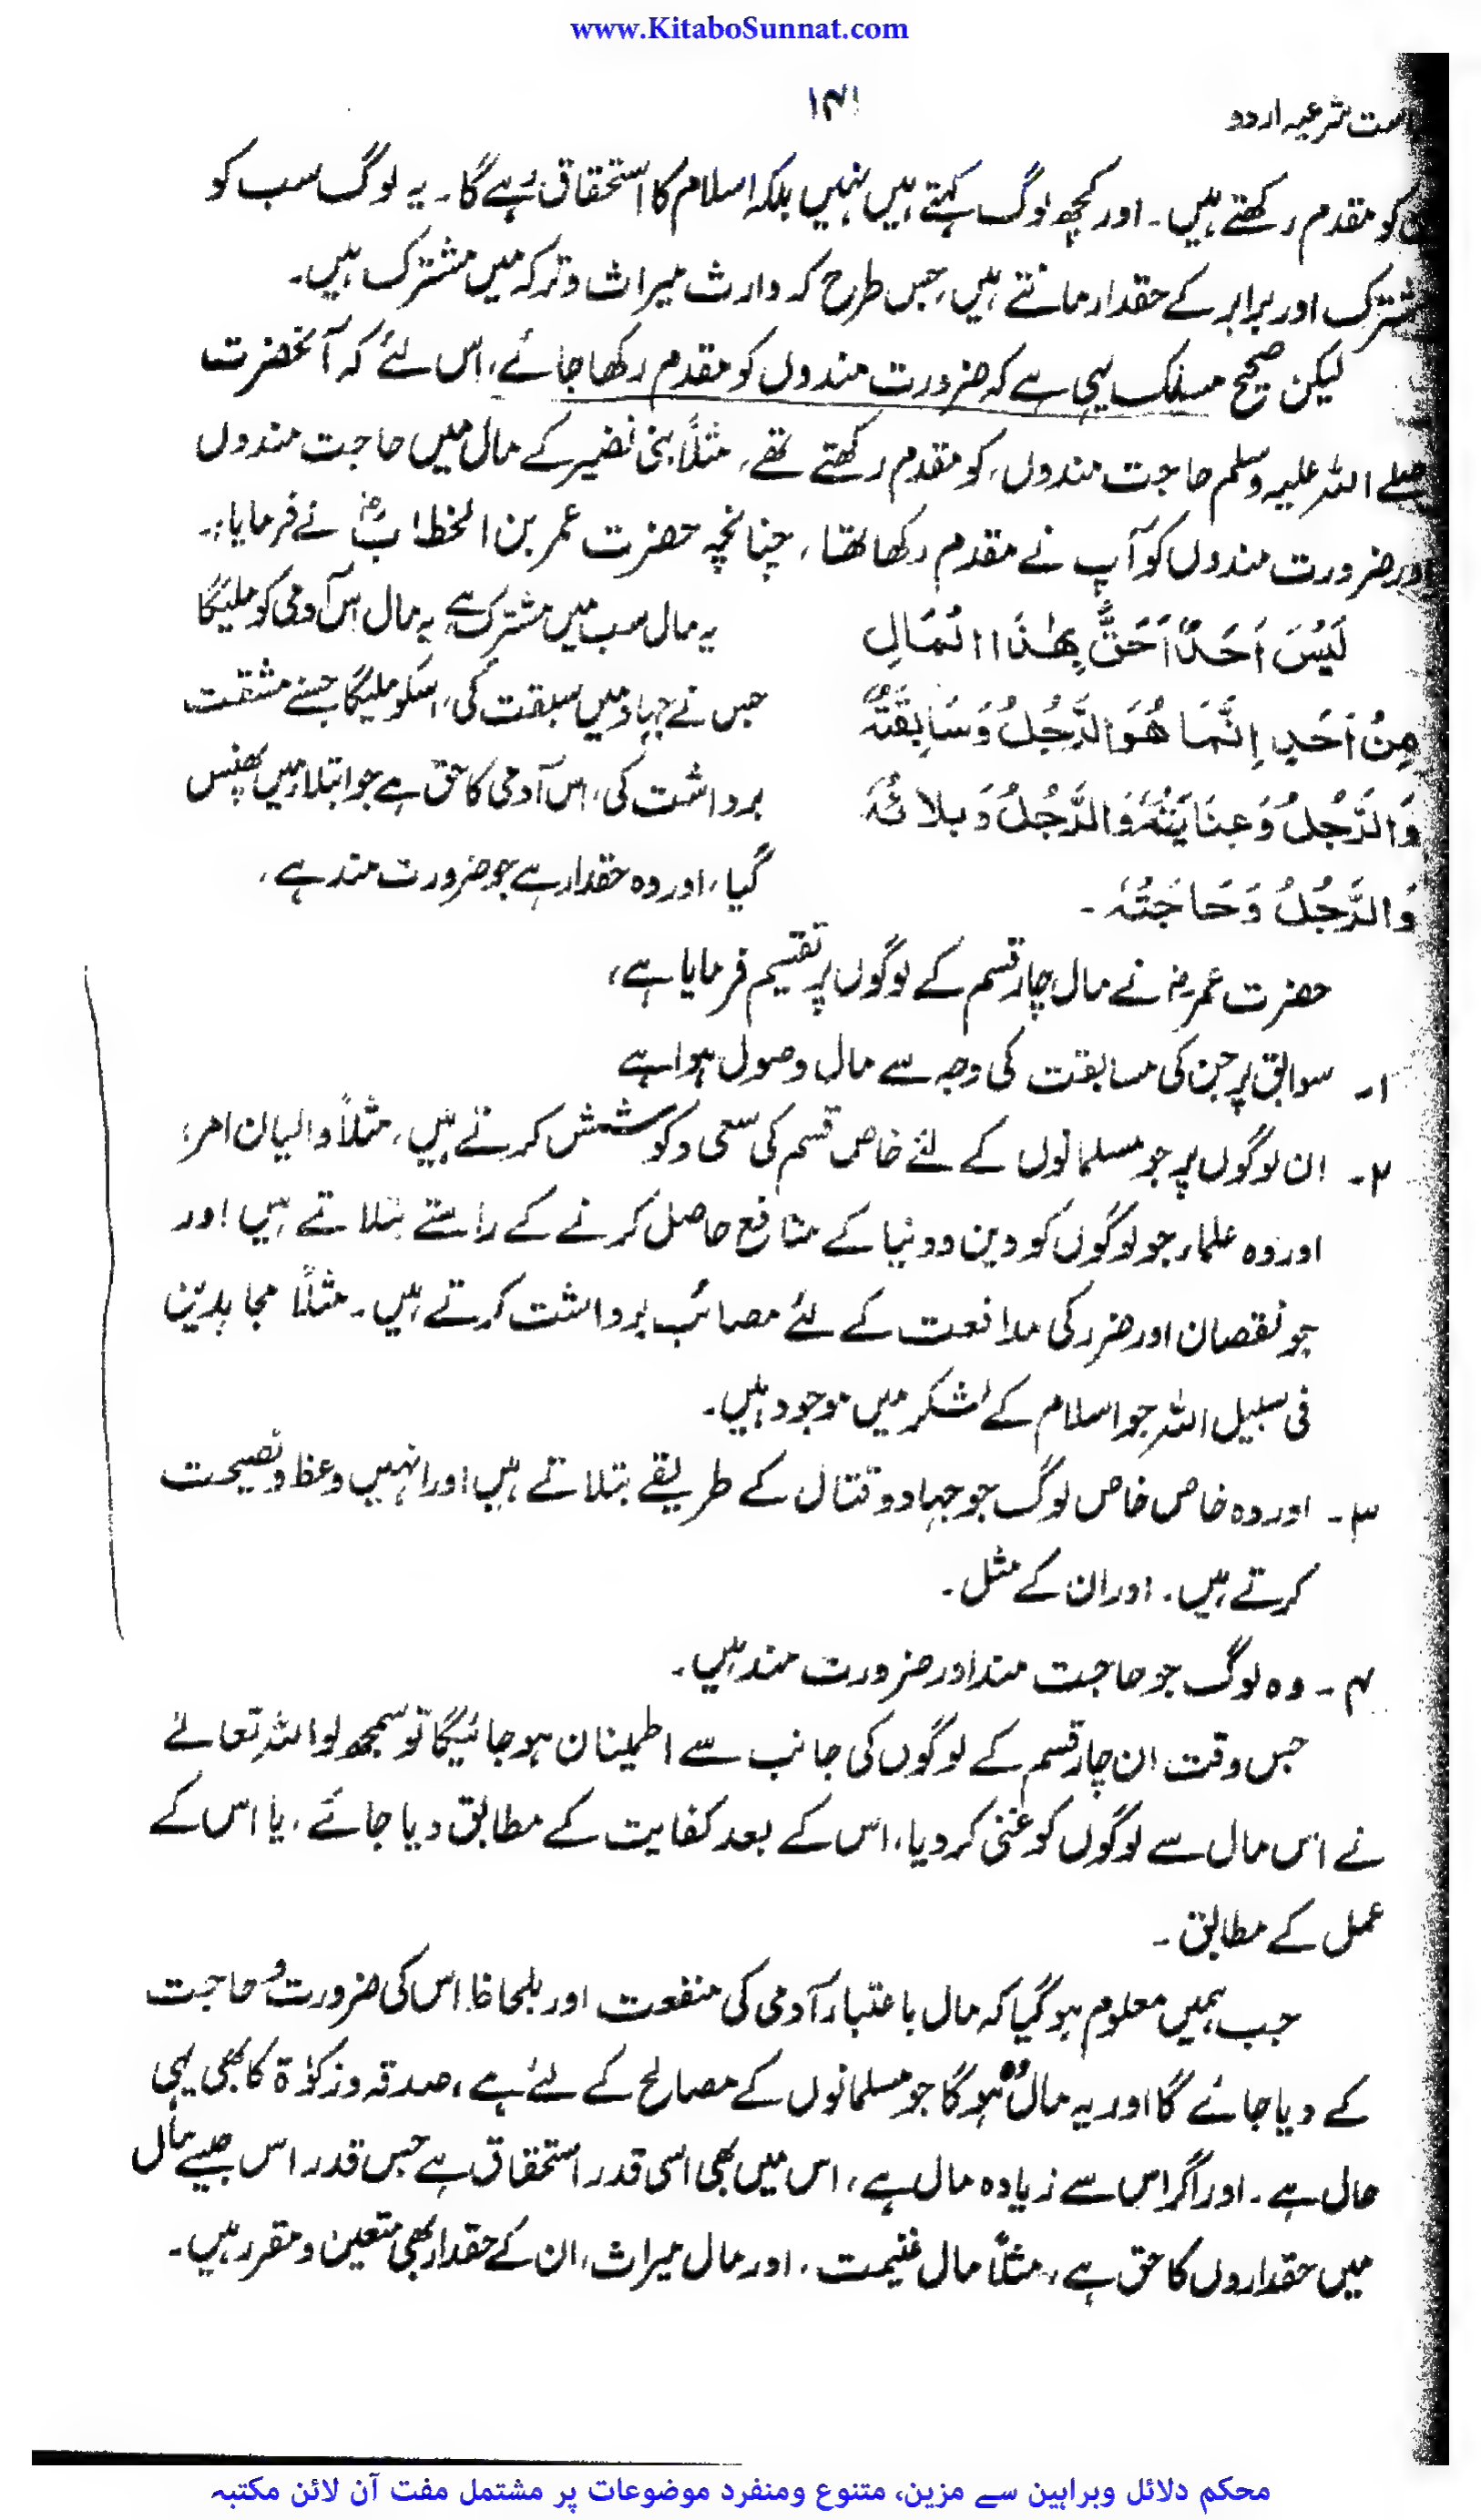 www.KitaboSunnat.com
۱۴۱
ست شرعیہ اردو
کو مقدم رکھتے ہیں۔ اور کچھ لوگ کہتے ہیں نہیں بلکہ اسلام کا استحقاق رہے گا۔ یہ لوگ سب کو
مشترک اور برابر کے حقدار مانتے ہیں، جس طرح کہ وارث میراث وترکہ میں مشترک ہیں۔
لیکن صحیح مسلک یہی ہے کہ ضرورت مندوں کو مقدم رکھا جائے، اس لئے کہ آنحضرت
صلے اللہ علیہ وسلم حاجت مندوں کو مقدم رکھتے تھے، مثلاً بنی نضیر کے مال میں حاجت مندوں
اور ضرورت مندوں کو آپ نے مقدم رکھا تھا، چنانچہ حضرت عمر بن الخطابؓ نے فرمایا:۔
لَیْسَ اَحَدٌ اَحَقُّ بِھٰذَا الْمَالِ
مِنْ اَحَدٍ اِنَّمَا ھُوَ الرَّجُلُ وَسَابِقَتُهٗ
وَالرَّجُلُ وَعِنَایَتُهٗ وَالرَّجُلُ وَبَلَائُهٗ
وَالرَّجُلُ وَحَاجَتُهٗ ۔
یہ مال سب میں مشترک ہے یہ مال اس آدمی کو ملیگا
جس نے جہاد میں سبقت کی، اسکو ملیگا جسنے مشقت
برداشت کی، اس آدمی کا حق ہے جو ابتلاء میں پھنس
گیا، اور وہ حقدار ہے جو ضرورت مند ہے،
حضرت عمرؓ نے مال چار قسم کے لوگوں پر تقسیم فرمایا ہے،
۱۔ سوابق پر جن کی مسابقت کی وجہ سے مال وصول ہوا ہے
۲۔ ان لوگوں پر جو مسلمانوں کے لئے خاص قسم کی سعی وکوشش کرتے ہیں، مثلاً والیان امر،
اور وہ علماء جو لوگوں کو دین ودنیا کے منافع حاصل کرنے کے راستے بتلاتے ہیں اور
جو نقصان اور ضرر کی مدافعت کے لئے مصائب برداشت کرتے ہیں۔ مثلاً مجاہدین
فی سبیل اللہ جو اسلام کے لشکر میں موجود ہیں۔
۳۔ اور وہ خاص خاص لوگ جو جہاد وقتال کے طریقے بتلاتے ہیں اور انہیں وعظ ونصیحت
کرتے ہیں۔ اور ان کے مثل۔
۴۔ وہ لوگ جو حاجت مند اور ضرورت مند ہیں۔
جس وقت ان چار قسم کے لوگوں کی جانب سے اطمینان ہو جائیگا تو سمجھ لو اللہ تعالےٰ
نے اس مال سے لوگوں کو غنی کر دیا، اس کے بعد کفایت کے مطابق دیا جائے، یا اس کے
عمل کے مطابق ۔
جب ہمیں معلوم ہو گیا کہ مال باعتبار آدمی کی منفعت اور بلحاظ اس کی ضرورت و حاجت
کے دیا جائے گا اور یہ مال وہ ہوگا جو مسلمانوں کے مصالح کے لئے ہے، صدقہ وزکوٰۃ کا بھی یہی
حال ہے۔ اور اگر اس سے زیادہ مال ہے، اس میں بھی اسی قدر استحقاق ہے جس قدر اس جیسے مال
میں حقداروں کا حق ہے، مثلاً مال غنیمت، اور مال میراث، ان کے حقدار بھی متعین ومقرر ہیں۔
محکم دلائل وبراہین سے مزین، متنوع ومنفرد موضوعات پر مشتمل مفت آن لائن مکتبہ